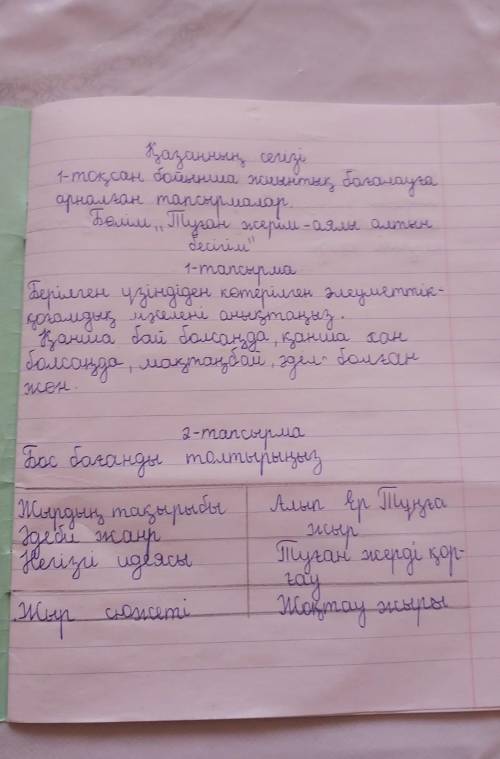 Қазанның сегізі
1-тоқсан бойынша жиынтық бағалауға
арналған тапсырмалар.
Бөлім „Туған жерім-аялы алтын
бесігім"
1-тапсырма
Берілген үзіндіден көтерілген әлеуметтік-
қоғамдық мәселені анықтаңыз.
Қанша бай болсаңда, қанша хан
болсаңда, мақтаңбай, әдел болған
жөн.
2-тапсырма
Бос бағанды толтырыңыз
Жырдың тақырыбы Алып Ер Тұңға
Әдеби жанр жыр
Негізгі идеясы Туған жерді қор-
ғау
Жыр сюжеті Жоқтау жыры